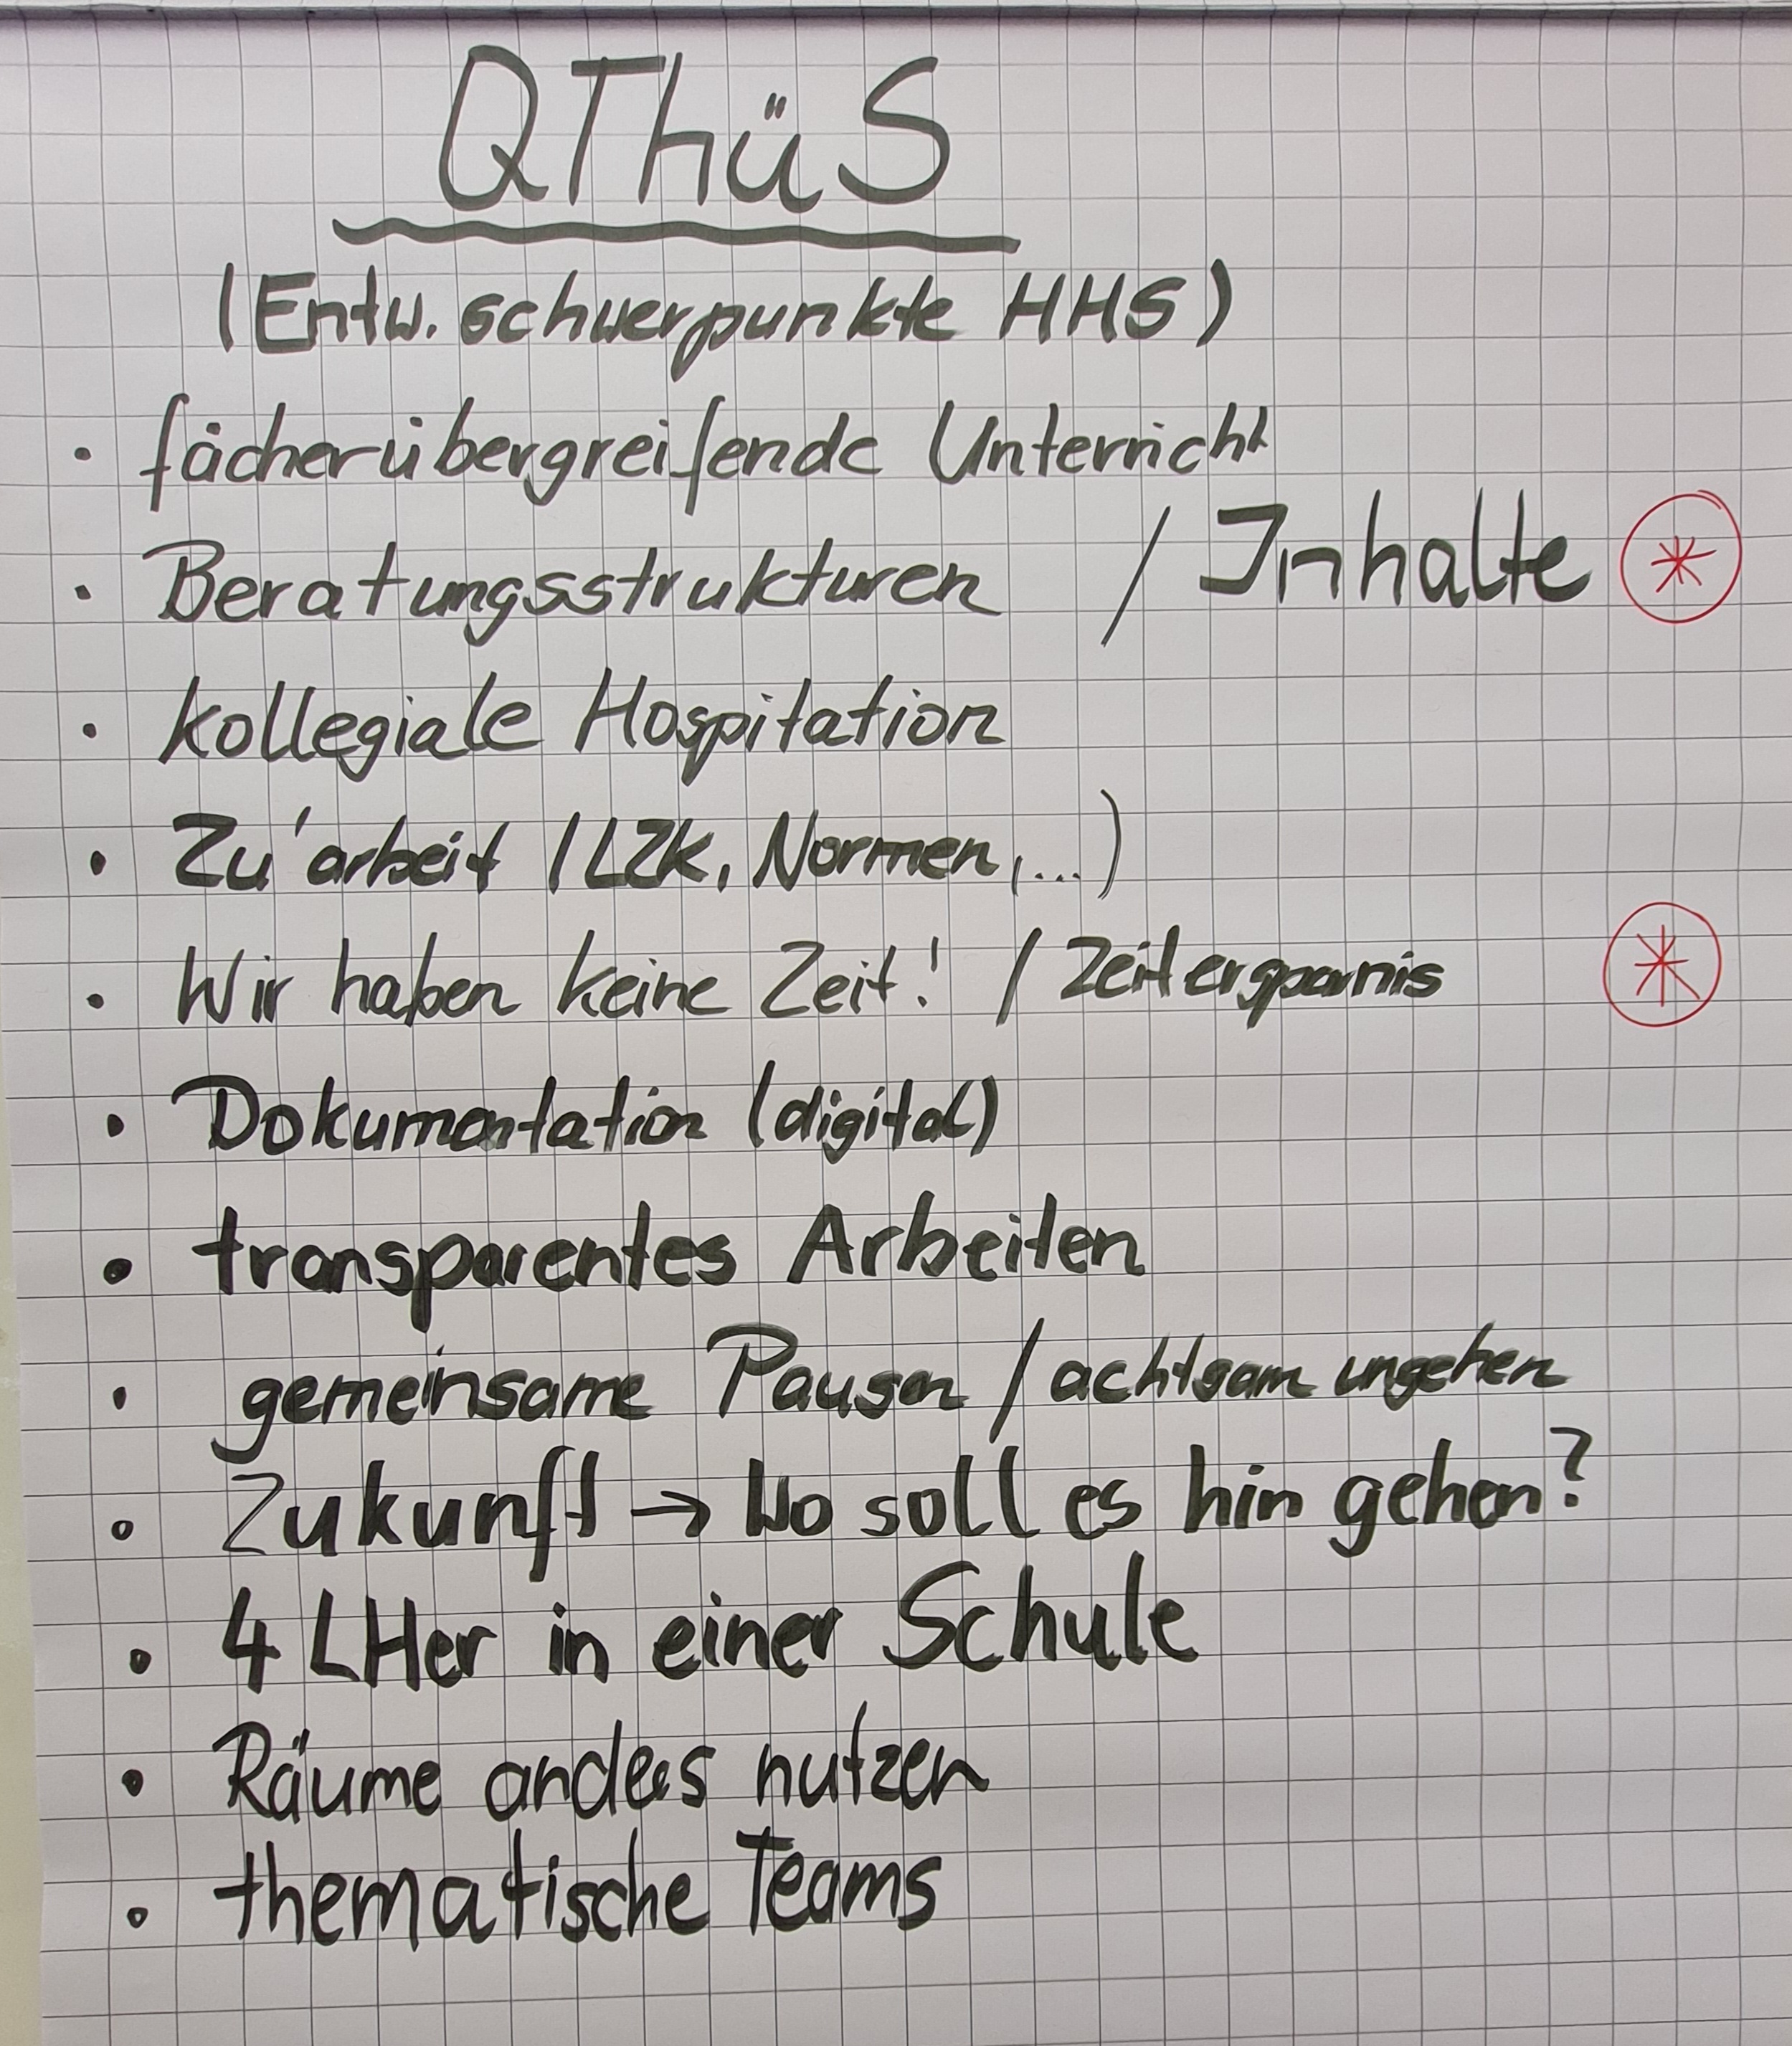 QThüS
(Entw. schwerpunkte HHS)
· fächerübergreifende Unterricht
· Beratungsstrukturen / Inhalte *
· kollegiale Hospitation
· Zu'arbeit (LZK, Normen, ...)
· Wir haben keine Zeit! / Zeitersparnis *
· Dokumentation (digital)
· transparentes Arbeiten
· gemeinsame Pausen / achtsam umgehen
· Zukunft → Wo soll es hin gehen?
· 4 LHer in einer Schule
· Räume anders nutzen
· thematische Teams